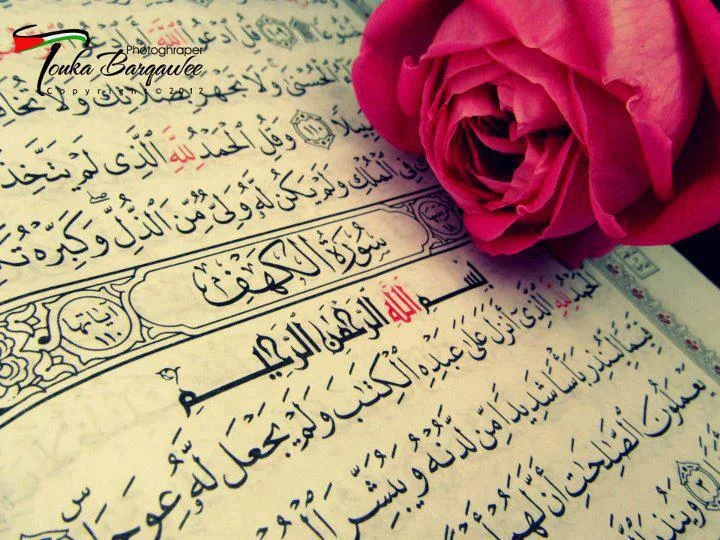 Photoghraper
Touka Barqawee
Copyrigh ©2012
قُلِ ٱدْعُوا۟ ٱللَّهَ أَوِ
ٱلْحُسْنَىٰ وَلَا تَجْهَرْ بِصَلَاتِكَ وَلَا تُخَا
سَبِيلًا ١١٠ وَقُلِ ٱلْحَمْدُ لِلَّهِ ٱلَّذِى لَمْ يَتَّخِذْ
فِى ٱلْمُلْكِ وَلَمْ يَكُن لَّهُۥ وَلِىٌّ مِّنَ ٱلذُّلِّ وَكَبِّرْهُ تَكْ
سُورَةُ الكَهْفِ
آياتها ١١٠
بِسْمِ ٱللَّهِ ٱلرَّحْمَٰنِ ٱلرَّحِيمِ
ٱلْحَمْدُ لِلَّهِ ٱلَّذِىٓ أَنزَلَ عَلَىٰ عَبْدِهِ ٱلْكِتَٰبَ وَلَمْ يَجْعَل لَّهُۥ عِوَجَاۜ
قَيِّمًا لِّيُنذِرَ بَأْسًا شَدِيدًا مِّن لَّدُنْهُ وَيُبَشِّرَ ٱلْ
يَعْمَلُونَ ٱلصَّٰلِحَٰتِ أَنَّ لَهُمْ
٣ وَيُنذِرَ